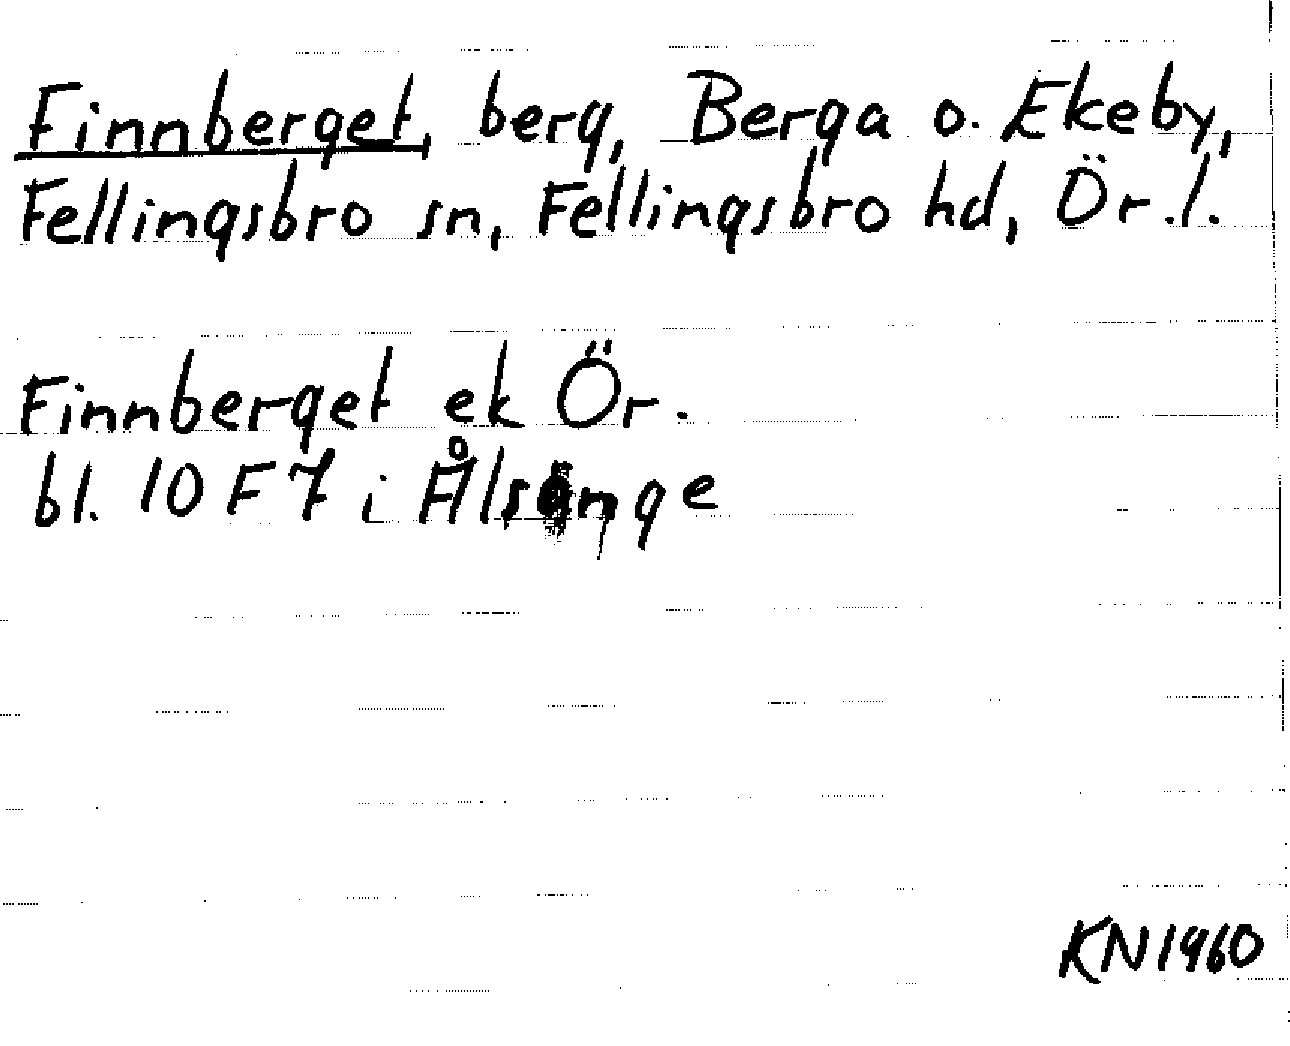 Finnberget, berg, Berga o. Ekeby,
Fellingsbro sn, Fellingsbro hd, Ör.l.
Finnberget ek Ör.
bl. 10 F 7 i Ålsånge
KN 1960